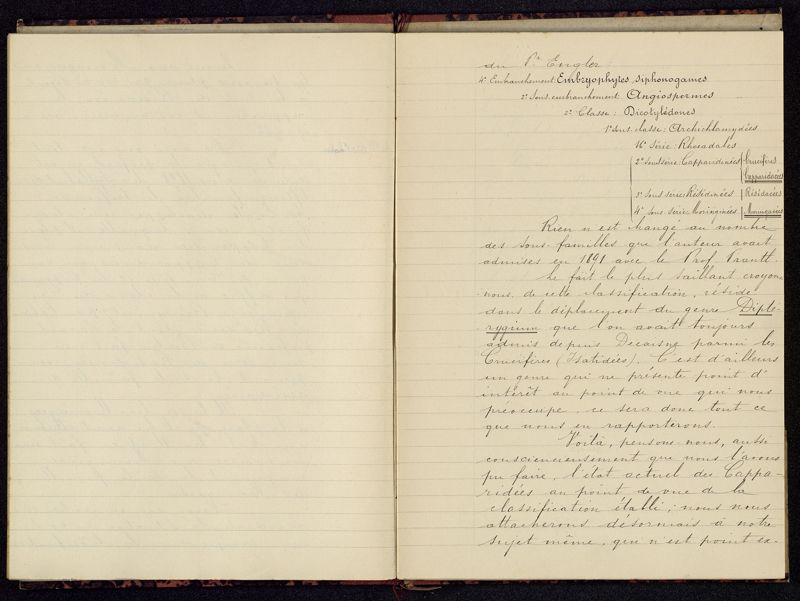 du Pr Engler:
4e Embranchement: Embryophytes siphonogames
2e Sous embranchement: Angiospermes
2e Classe: Dicotylédones
1re Sous classe: Archichlamydées
16e Série: Rhoeadales
2e Sous série: Capparidinées Crucifères
Capparidacées
3e Sous série: Résédinées Résédacées
4e Sous série: Moringinées Moringacées
Rien n'est changé au nombre
des sous-familles que l'auteur avait
admises en 1891 avec le Prof Prantl.
Le fait le plus saillant croyons
nous, de cette classification, réside
dans le déplacement du genre Dipte-
rygium que l'on avait toujours
admis depuis Decaisne parmi les
Crucifères (Isatidées). C'est d'ailleurs
un genre qui ne présente point d'
intérêt au point de vue qui nous
préoccupe, ce sera donc tout ce
que nous en rapporterons.
Voilà, pensons-nous, aussi
consciencieusement que nous l'avons
pu faire, l'état actuel des Cappa-
ridées au point de vue de la
classification établi; nous nous
attacherons désormais à notre
sujet même, qui n'est point ex-